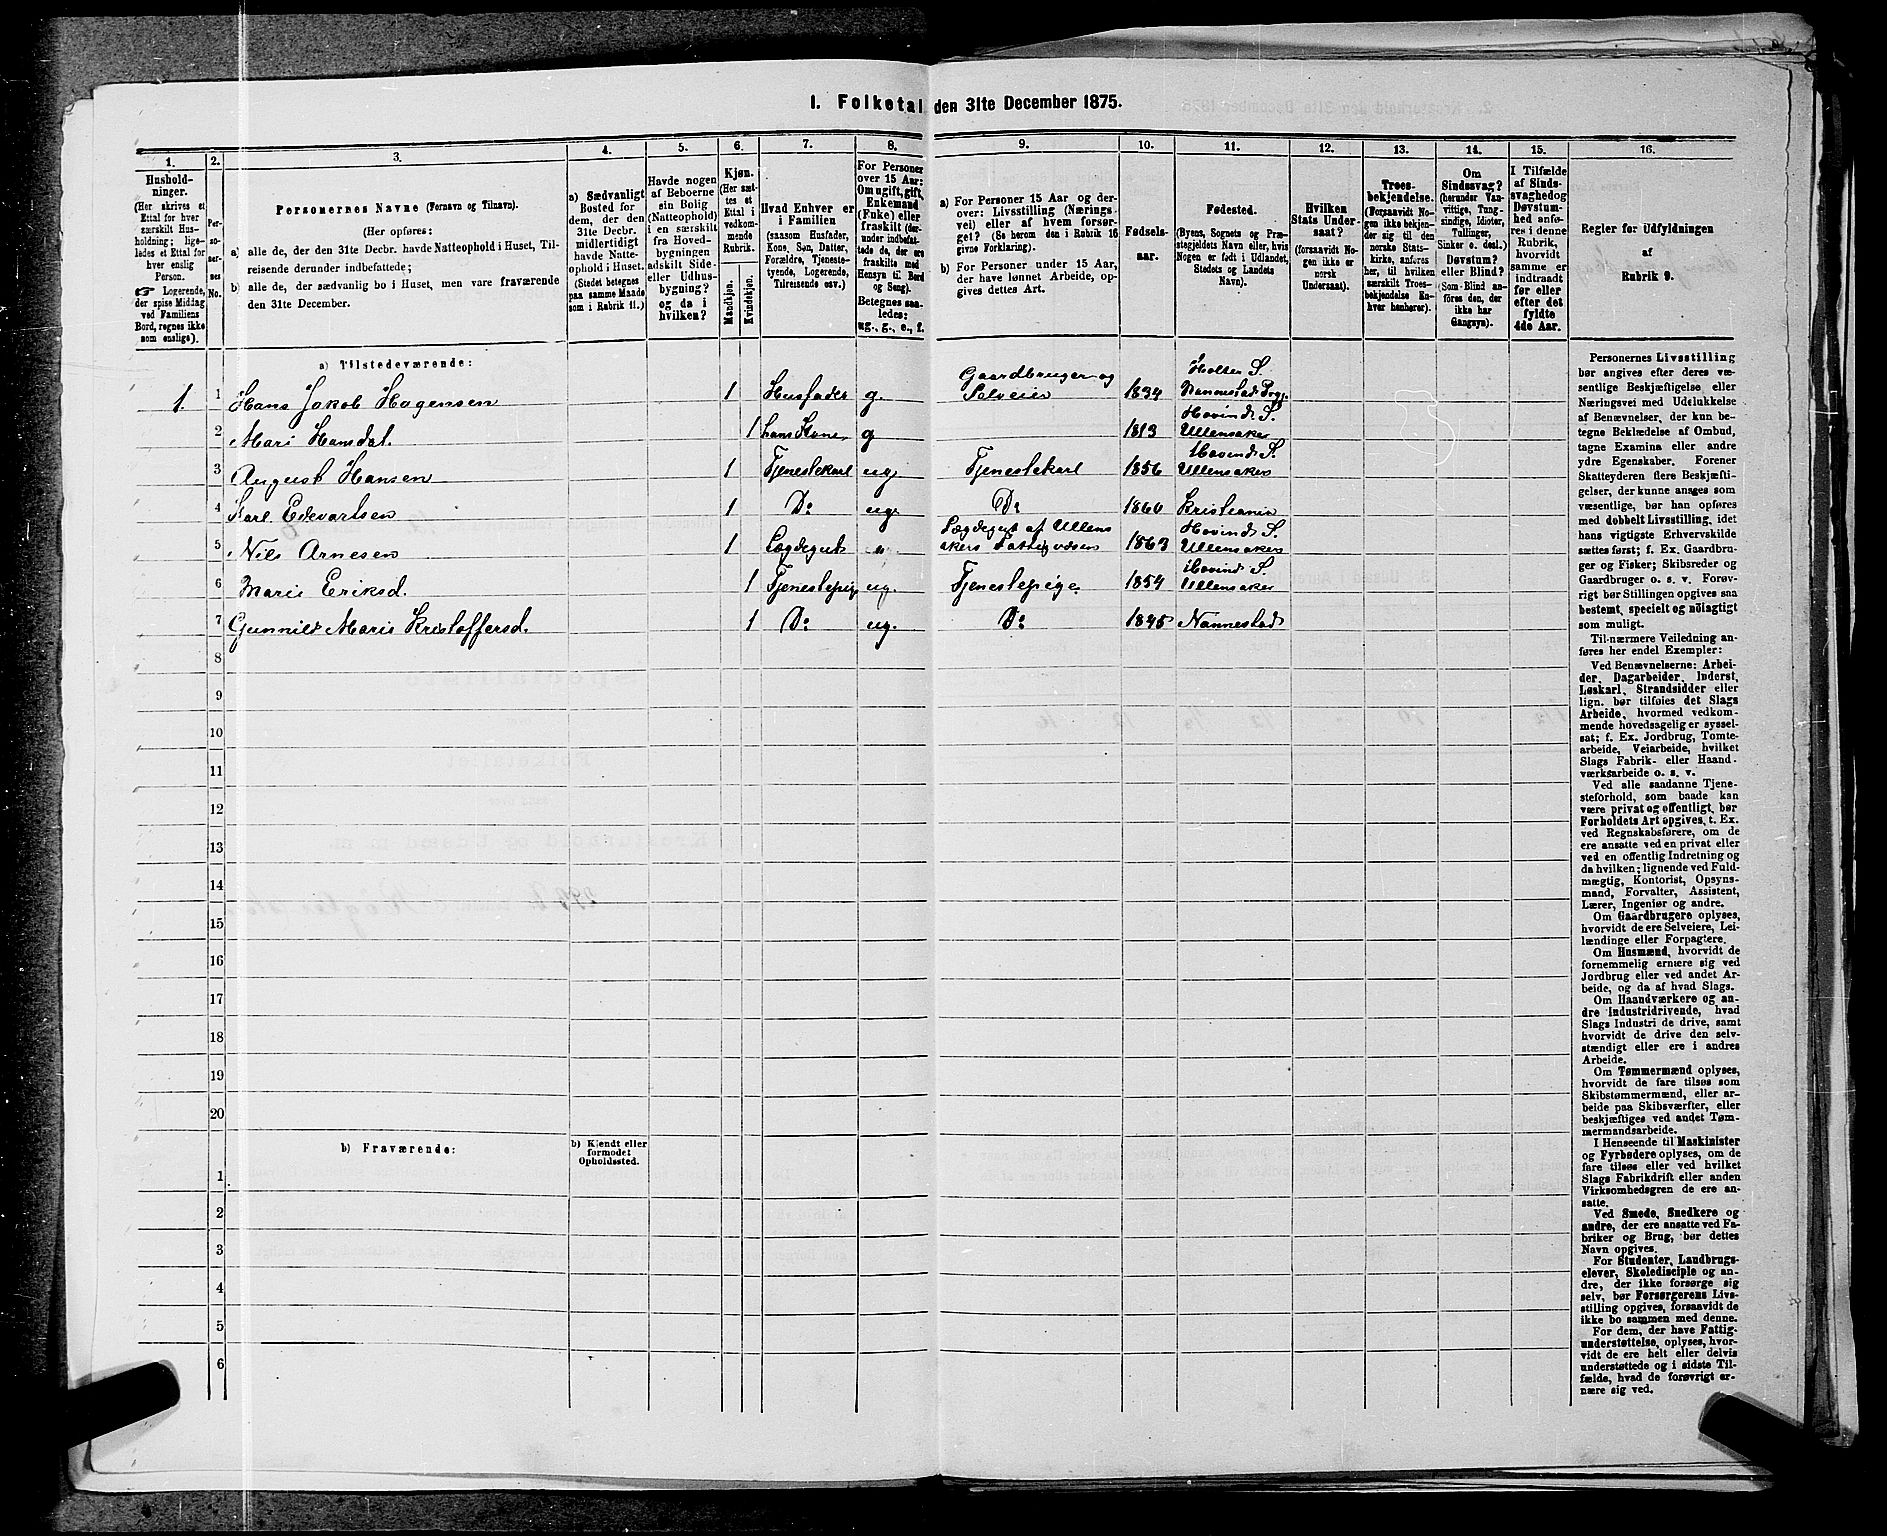 1. Folketal den 31te December 1875.
1. 2. 3. 4. 5. 6. 7. 8. 9. 10. 11. 12. 13. 14. 15. 16.
Husholdninger.
(Her skrives et
Ettal for hver
særskilt Husholdning;
ligeledes et Ettal for
hver enslig
Person.
Logerende,
der spise Middag
ved Familiens
Bord, regnes ikke
som enslige).
Personernes No.
Personernes Navne (Fornavn og Tilnavn).
(Her opføres:
a) alle de, der den 31te Decbr. havde Natteophold i Huset, Tilreisende derunder indbefattede;
b) alle de, der sædvanlig bo i Huset, men vare fraværende
den 31te December.
a) Sædvanligt
Bosted for
dem, der den
31te Decbr.
midlertidigt
havde Natteophold i Huset.
(Stedet betegnes
paa samme Maade
som i Rubrik 11.)
Havde nogen
af Beboerne
sin Bolig
(Natteophold)
i en særskilt
fra Hovedbygningen
adskilt Side-
eller Udhusbygning?
og da i
hvilken?
Kjøn.
(Her sættes et
Ettal i
vedkommende
Rubrik.
Mandkjøn.
Kvindekjøn.
Hvad Enhver er
i Familien
(saasom Husfader,
Kone, Søn, Datter,
Forældre, Tjenestetyende, Logerende,
Tilreisende osv.)
For Personer
over 15 Aar:
Om ugift, gift,
Enkemand
(Enke) eller
fraskilt (derunder indbefattede de, der ere
fraskilte med
Hensyn til Bord
og Seng).
Betegnes saaledes:
ug., g., e., f.
a) For Personer 15 Aar og derover: Livsstilling (Næringsvei) eller af hvem forsørget? (Se herom den i Rubrik 16
givne Forklaring).
b) For Personer under 15 Aar,
der have lønnet Arbeide, opgives dettes Art.
Fødselsaar.
Fødested.
(Byens, Sognets og Præstegjeldets Navn eller, hvis
Nogen er født i Udlandet,
Stedets og Landets
Navn).
Hvilken
Stats Undersaat?
(forsaavidt Nogen ikke er
norsk
Undersaat).
Troesbekjendelse.
(Forsaavidt Nogen ikke bekjender sig til den
norske Statskirke, anføres
her, til hvilken
særskilt Troesbekjendelse Enhver henhører).
Om
Sindssvag?
(herunder Vanvittige, Tungsindige, Idioter,
Tullinger,
Sinker o. desl.)
Døvstum?
eller Blind?
(Som Blind anføres den, der
ikke har
Gangsyn).
I Tilfælde
af Sindssvaghed og
Døvstumhed anføres i denne
Rubrik,
hvorvidt
samme er
indtraadt
før eller
efter det
fyldte
4de Aar.
Regler for Udfyldningen
af
Rubrik 9.
a) Tilstedeværende:
1. 1 Hans Jakob Hagensen 1 Husfader g. Gaardbruger og Selveier 1834 Holter S. Nannestad Prgj.
2 Mari Hansdat. 1 hans Kone g 1813 Hovind S. Ullensaker
3 August Hansen 1 Tjenestekarl ug Tjenestekarl 1856 Hovind S. Ullensaker
4 Karl Edevartsen 1 Do ug. Do 1860 Kristiania
5 Nils Arnesen 1 Lægdegut Lægdegut af Ullensakers Fattigvæsen 1863 Hovind S. Ullensaker
6 Marie Eriksd. 1 Tjenestepige ug. Tjenestepige 1854 Hovind S. Ullensaker
7 Gunnild Maria Kristoffersd. 1 Do ug. Do 1845 Nannestad
8
9
10
11
12
13
14
15
16
17
18
19
20
b) Fraværende:
b) Kjendt eller
formodet
Opholdssted.
1
2
3
4
5
6
Personernes Livsstilling
bør angives efter deres væsentlige Beskjæftigelse eller
Næringsvei med Udelukkelse
af Benævnelser, der kun betegne Beklædelse af Ombud,
tagne Examina eller andre
ydre Egenskaber. Forener
Skatteyderen flere Beskjæftigelser, der kunne ansees som
væsentlige, bør han opføres
med dobbelt Livsstilling, idet
hans vigtigste Erhvervskilde
sættes først; f. Ex. Gaardbruger og Fisker; Skibsreder og
Gaardbruger o. s. v. Forøvrigt bør Stillingen opgives saa
bestemt, specielt og nøiagtigt
som muligt.
Til nærmere Veiledning anføres her endel Exempler:
Ved Benævnelserne: Arbeider, Dagarbeider, Inderst,
Løskarl, Strandsidder eller
lign. bør tilføies det Slags
Arbeide, hvormed vedkommende hovedsagelig er sysselsat; f. Ex. Jordbrug, Tomtearbeide, Veiarbeide, hvilket
Slags Fabrik- eller Haandværksarbeide o. s. v.
Ved alle saadanne Tjenesteforhold, som baade kan
være privat og offentligt, bør
Forholdets Art opgives, t. Ex.
ved Regnskabsførere, om de
ere ansatte ved en privat eller
ved en offentlig Indretning og
da hvilken; lignende ved Fuldmægtig, Kontorist, Opsynsmand, Forvalter, Assistent,
Lærer, Ingeniør og andre.
Om Gaardbrugere oplyses,
hvorvidt de ere Selveiere, Leilændinge eller Forpagtere.
Om Husmænd, hvorvidt de
fornemmelig ernære sig ved
Jordbrug eller ved andet Arbeide, og da af hvad Slags.
Om Haandværkere og andre Industridrivende, hvad
Slags Industri de drive, samt
hvorvidt de drive den selvstændigt eller ere i andres
Arbeide.
Om Tømmermænd oplyses,
hvorvidt de fare tilsøs som
Skibstømmermænd, eller arbeide paa Skibsværfter, eller
beskjæftiges ved andet Tømmermandsarbeide.
I Henseende til Maskinister
og Fyrbødere oplyses, om de
fare tilsøs eller ved hvilket
Slags Fabrikdrift eller anden
Virksomhedsgren de ere ansatte.
Ved Smede, Snedkere og
andre, der ere ansatte ved Fabriker og Brug, bør dettes
Navn opgives.
For Studenter, Landbrugselever, Skoledisciple og andre, der ikke forsørge sig
selv, bør Forsørgerens Livsstilling opgives, forsaavidt de
ikke bo sammen med denne.
For dem, der have Fattigunderstøttelse, oplyses, hvorvidt de ere helt eller delvis
understøttede og i sidste Tilfælde, hvad de forøvrigt ernære sig ved.